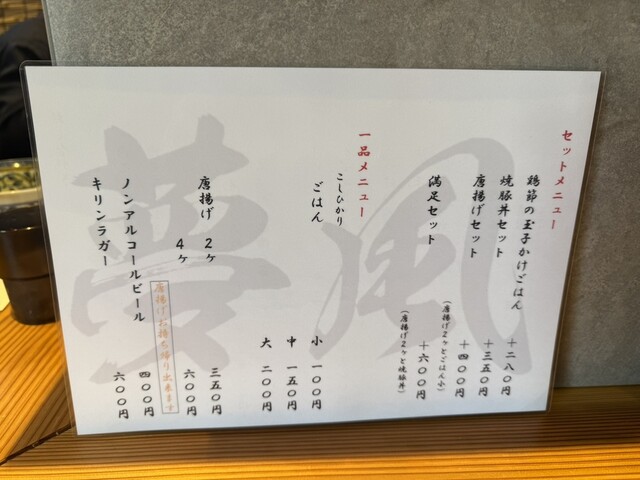 セットメニュー
鶏節の玉子かけごはん 十二八〇円
焼豚丼セット 十三五〇円
唐揚げセット 十四〇〇円
(唐揚げ2ケとごはん小)
満足セット 十六〇〇円
(唐揚げ2ケと焼豚丼)
一品メニュー
こしひかり
ごはん 小 一〇〇円
中 一五〇円
大 二〇〇円
唐揚げ 2ケ 三五〇円
4ケ 六〇〇円
唐揚げお持ち帰り出来ます
ノンアルコールビール 四〇〇円
キリンラガー 六〇〇円
夢風